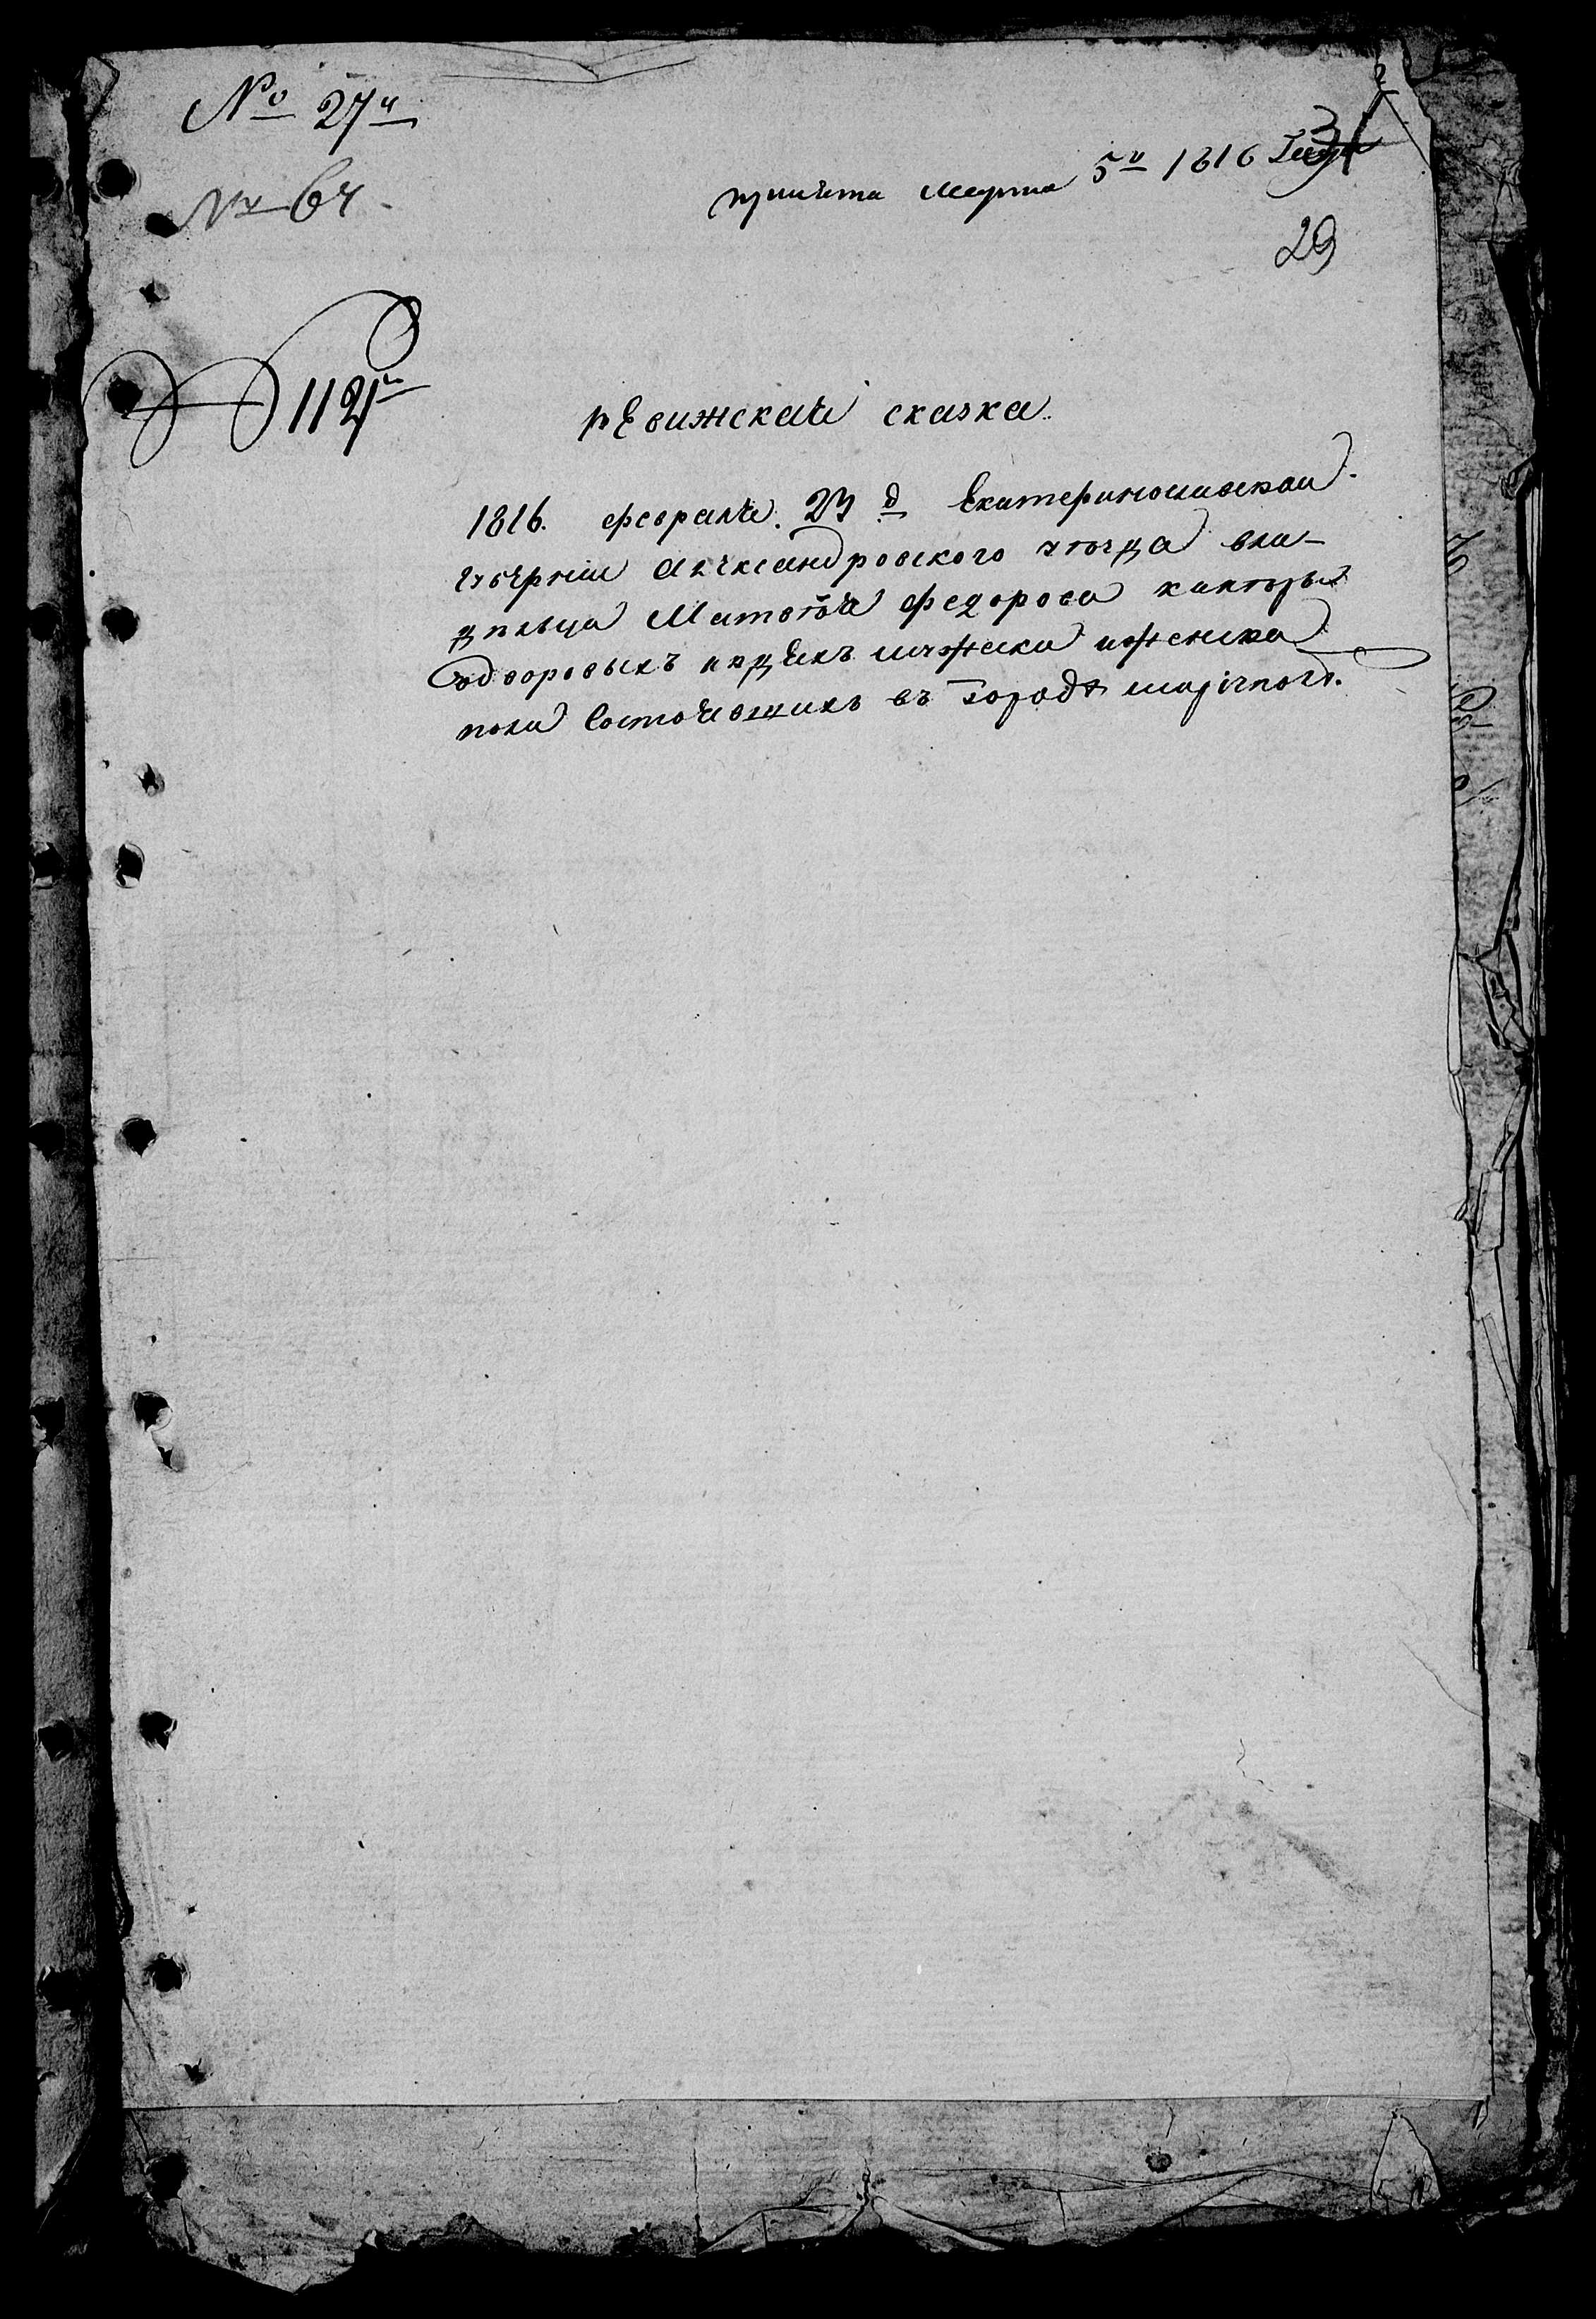 № 27й
№ 64
принята марта 5го 1816 Года
29
112
ревижская сказка
1816. февраля. 23 д Екатеринославской
губерни александровского уезда вла-
дельца Матвея федорова
дворовых людех мужеска ѝженска
пола Состоящихъ въ Городе мариупол.